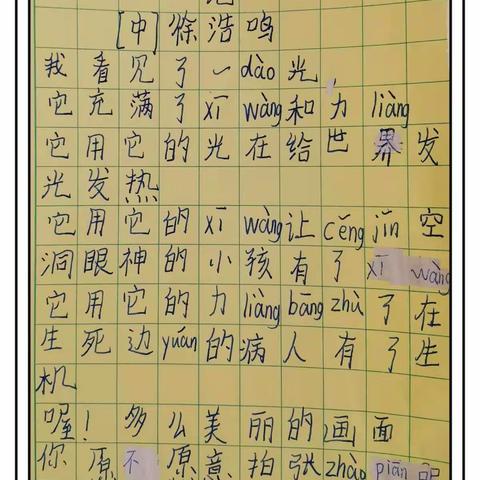 [中]徐浩鸣
我看见了一dào光,
它充满了xī wàng和力liàng
它用它的光在给世界发
光发热
它用它的xī wàng让cěng jīn空
洞眼神的小孩有了xī wàng
它用它的力liàng bāng zhù了在
生死边yuán的病人有了生
机
喔!多么美丽的画面
你原不愿意拍张zhào piān